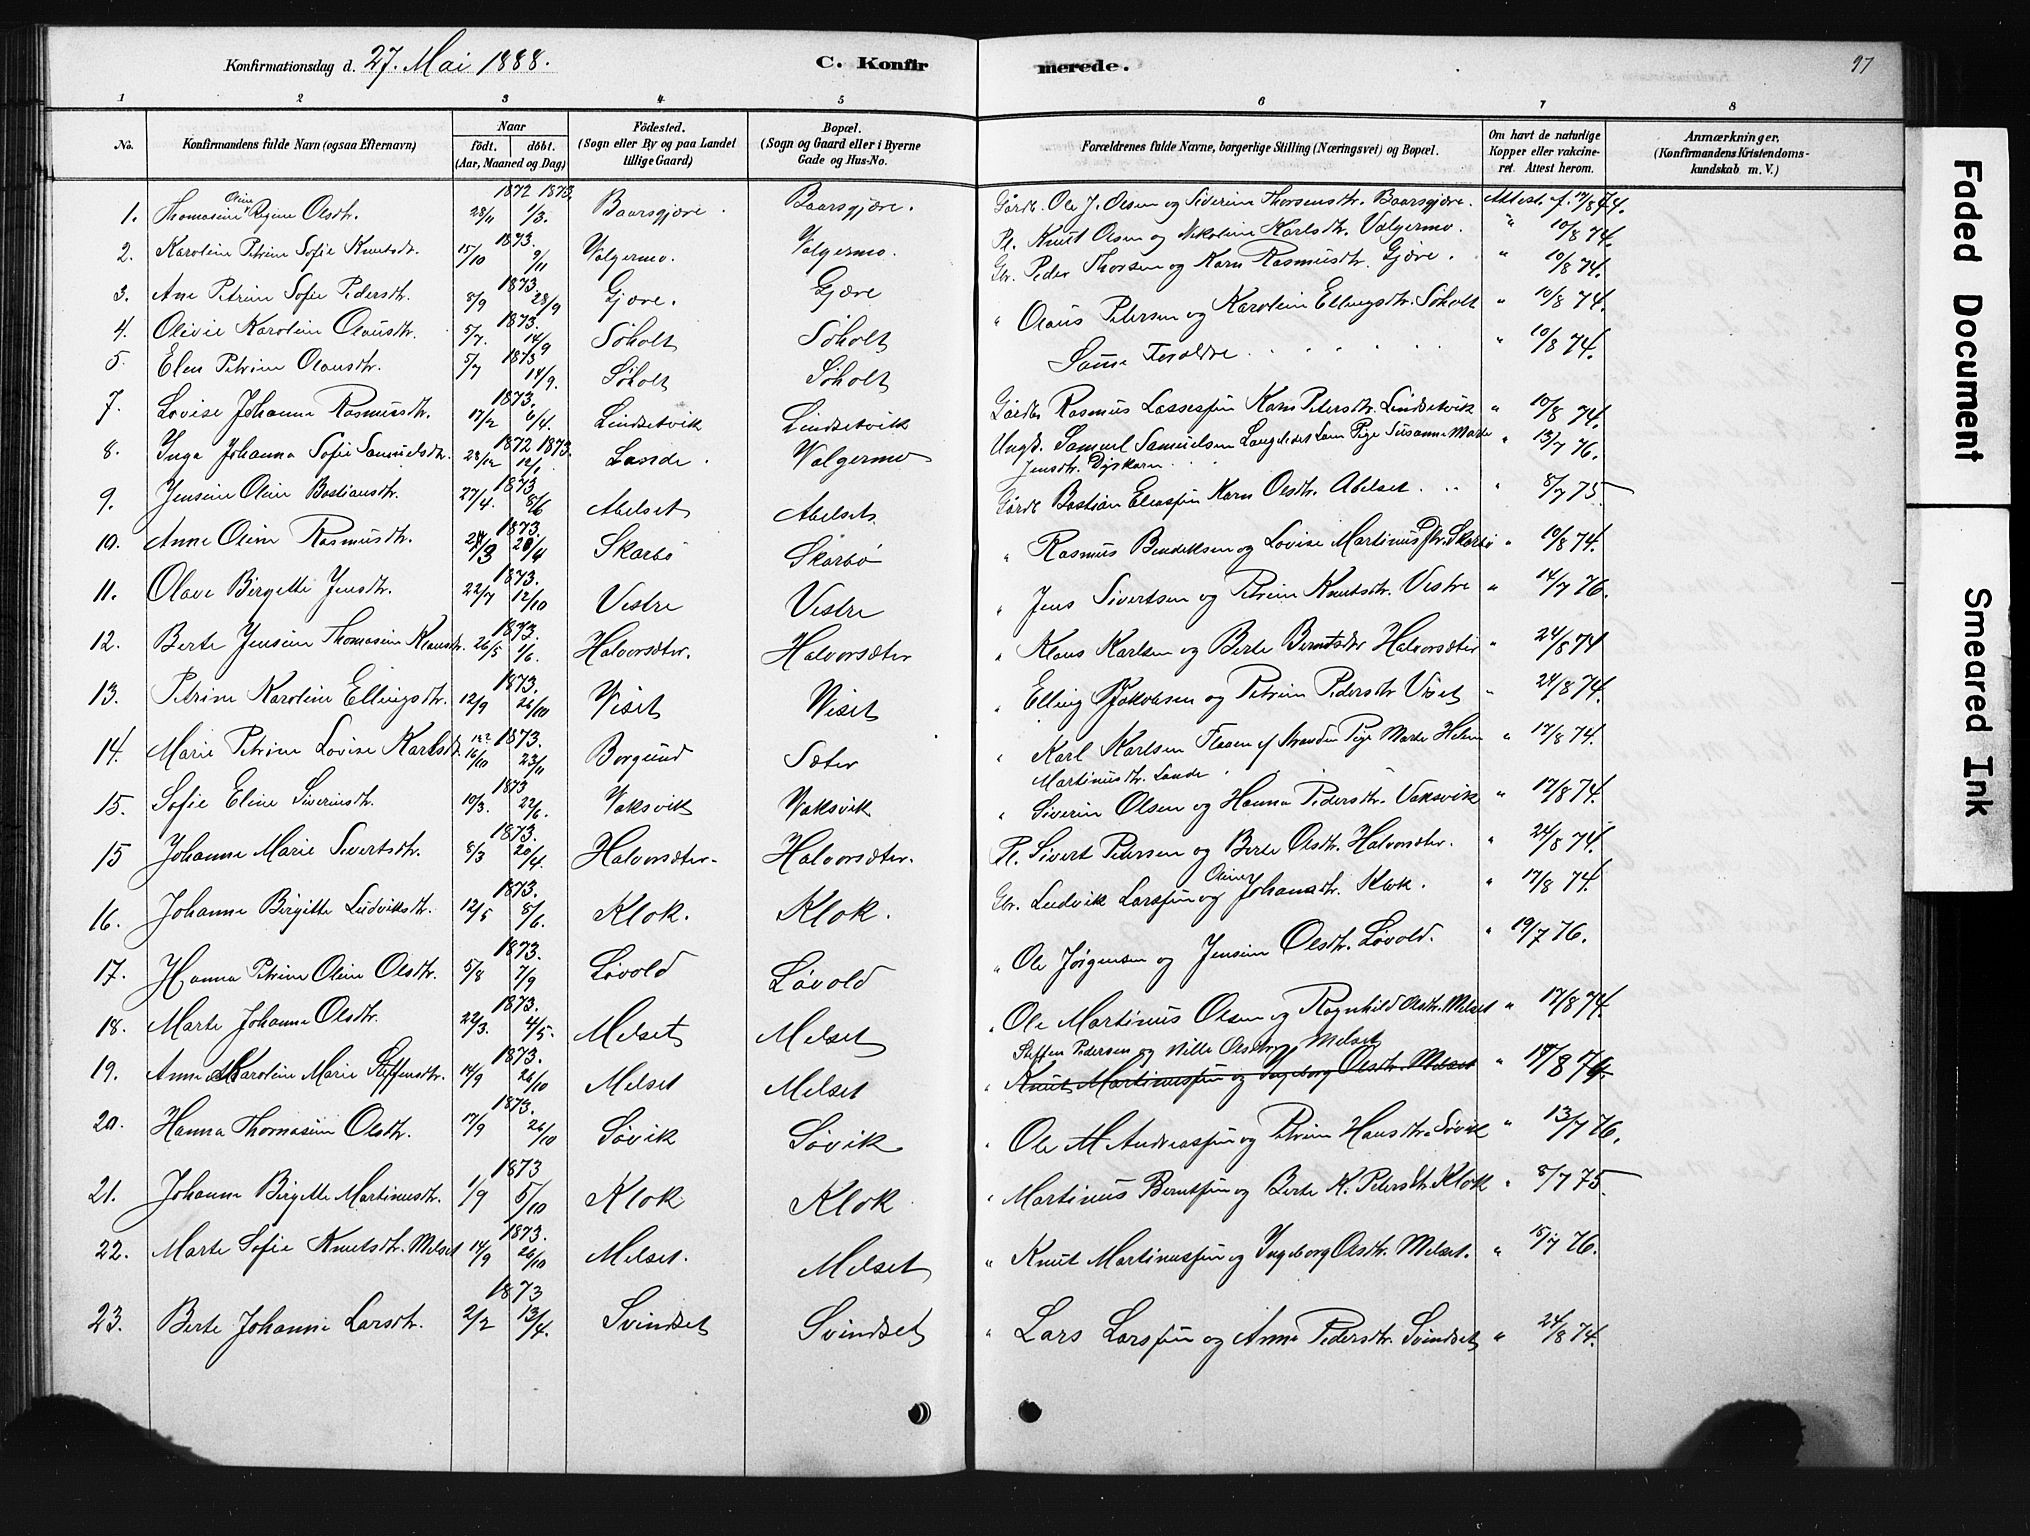 Konfirmationsdag d. 27. Mai 1888. C. Konfir merede. 97
1 2 3 4 5 6 7 8
No. Konfirmandens fulde Navn (ogsaa Efternavn) Naar født. døbt. (Aar, Maaned og Dag) Fødested. (Sogn eller By og paa Landet tillige Gaard) Bopæl. (Sogn og Gaard eller i Byerne Gade og Hus-No. Forældrenes fulde Navne, borgerlige Stilling (Næringsvei) og Bopæl. Om havt de naturlige Kopper eller vakcineret. Attest herom. Anmærkninger. (Konfirmandens Kristendomskundskab m. V.)
1. Thomasine Oline Regine Olsdtr. 1872 28/11 1873 1/3. Baarsgjøre. Baarsgjøre. Gårdb. Ole J. Olsen og Siverine Thorsensdtr. Baarsgjøre. Attest af 17/8 74.
2. Karoline Petrine Sofie Knutsdtr. 1873. 15/10 9/11 Valgermo. Valgermo. Pl. Knut Olsen og Nikoline Karlsdtr. Valgermo. " 10/8 74.
3. Ane Petrine Sofie Pedersdtr. 1873. 8/9 28/9 Gjøre. Gjøre Gbr. Peder Thorsen og Karn Rasmusdtr. Gjøre. " 10/8 74.
4. Olivie Karoline Olausdtr. 1873. 5/7. 14/9 Søholt Søholt " Olaus Petersen og Karoline Ellingsdtr. Søholt " 10/8 74.
5. Elen Petrine Olausdtr. 1873 5/7 14/9. Søholt Søholt Samme Forældre " 10/8 74.
7. Lovise Johanna Rasmusdtr. 1873. 17/2 6/4. Lindsetvik Lindsetvik Gårdb. Rasmus Lassessøn Karn Petersdtr. Lindsetvik " 10/8 74.
8. Inga Johanna Sofie Samuelsdtr. 1872 1873. 28/12 12/1 Lande. Valgermo Ungk. Samuel Samuelsen Langledet Sam Pige Susanna Marte Jensdtr. Dyskaren " 13/7 76.
9. Jensine Oline Bastiansdtr. 1873 27/4. 8/6 Abelset Abelset Gårdb Bastian Eliassøn Karn Olsdtr. Abelset " 8/7 75
10. Anne Oline Rasmusdtr. 1873. 24/3 20/4 Skarbø Skarbø " Rasmus Bendiksen og Lovise Martinusdtr. Skarbø " 10/8 74.
11. Olave Birgitte Jensdtr. 1873. 22/7 12/10 Vestre Vestre " Jens Sivertsen og Petrine Knutsdtr. Vestre " 14/7 76.
12. Berte Jensine Thomasine Klausdtr. 1873. 26/5 1/6. Halvorsæter. Halvorsæter " Klaus Karlsen og Berte Berntsdtr Halvorsæter " 24/8 74
13. Petrine Karoline Ellingsdtr. 1873. 12/9 26/10 Viset Viset " Elling Jakobsen og Petrine Pedersdtr Viset " 24/8 74.
14. Marie Petrine Lovise Karlsdtr. 1873. 16/10 23/11 Borgund Sæter " Karl Karlsen Flaaen af Stranden Pige Marte Helene Martinusdtr. Lande " 17/8 74.
15. Sofie Eline Siverinsdtr. 1873 10/3. 22/6. Vaksvik Vaksvik " Siverin Olsen og Hanna Pedersdtr. Vaksvik " 17/8 74.
15 Johanne Marie Sivertsdtr. 1873. 8/3 20/4. Halvorsæter. Halvorsæter. Pl. Sivert Petersen og Berte Olsdtr. Halvorsæter. " 24/8 74.
16. Johanne Birgitte Ludviksdtr. 1873. 12/5 8/6. Klok. Klok. Gbr. Ludvik Larssøn og Oline Johansdtr. Klok. " 17/8 74.
17. Hanna Petrine Oline Olsdtr. 1873. 5/8 7/9 Løvold Løvold " Ole Jørgensen og Jensine Olsdtr. Løvold. " 19/7 76.
18. Marte Johanne Olsdtr. 1873. 22/3. 4/5. Melset Melset " Ole Martinus Olsen og Ragnhild Olsdtr. Melset " 17/8 74.
19. Anna Karoline Marie Steffensdtr. 1873. 14/9 26/10 Melset Melset Steffen Pedersen og Nille Olsdtr Melset
" Knut Martinussøn og Ingeborg Olsdtr. Melset " 17/8 74.
20. Hanna Thomasine Olsdtr. 1873. 17/9 26/10 Søvik Søvik " Ole M Andreassøn og Petrine Hansdtr. Søvik " 13/7 76.
21. Johanne Birgitte Martinusdtr. 1873 1/9 5/10 Klok Klok " Martinus Berntsøn og Berte K. Petersdtr. Klok " 8/7 75.
22. Marte Sofie Knutsdtr. Melset 1873. 14/9 26/10 Melset. Melset " Knut Martinussøn og Ingeborg Olsdtr. Melset. " 15/7 76.
23. Berte Johanne Larsdtr. 1873 2/2 13/4. Svindset Svindset " Lars Larssøn og Anne Pedersdtr. Svindset " 24/8 74.
Faded Document
Smeared Ink